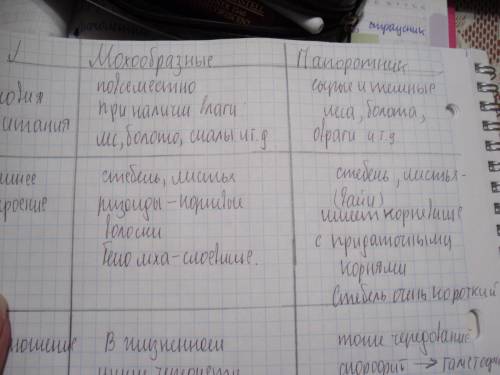 страусник
Мохообразные
Папоротник
повсеместно
при наличии влаги
лес, болото, скалы и т.д
сырые и темные
леса, болота,
овраги и т.д
овия
итания
стебель, листья
ризоиды-корневые
волоски
тело мха-слоевище.
стебель, листья-
(вайи)
имеет корневище
с придаточными
корнями
Стебель очень короткий
шнее
роение
ношение
В жизненном
цикле
тоже чередование
спорофит → гаметоф